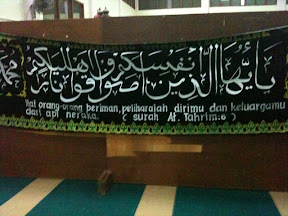 يا أيها الذين آمنوا قوا أنفسكم وأهليكم نارا
محمد
Hai orang-orang beriman, peliharalah dirimu dan keluargamu
dari api neraka. ( surah At. Tahrim:6 )